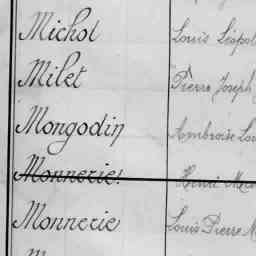 Michot Louis Léopol
Milet Pierre Joseph
Mongodin Ambroise Lou
Monnerie. Henri
Monnerie Louis Pierre M